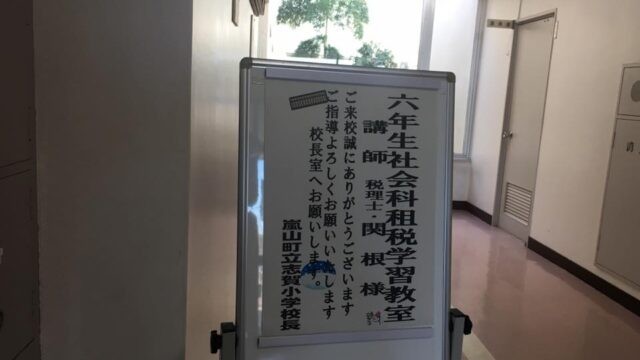 六年生社会科租税学習教室
講師 税理士・関根様
ご来校誠にありがとうございます
ご指導よろしくお願いいたします
校長室へお願いします。
嵐山町立志賀小学校長